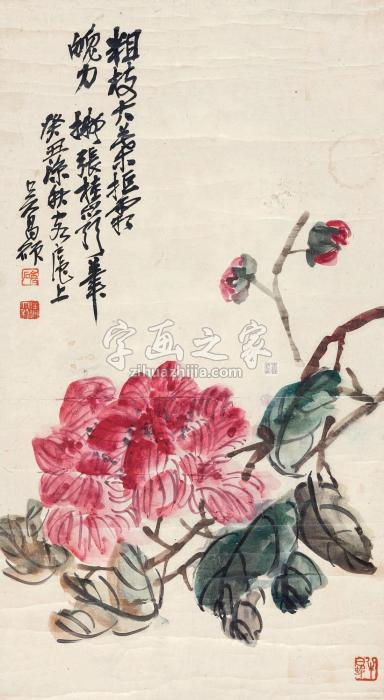 粗枝大葉拒霜
魄力 擬張桂岩筆
癸丑深秋客滬上
吳昌碩
字画之家
zihuazhijia.com